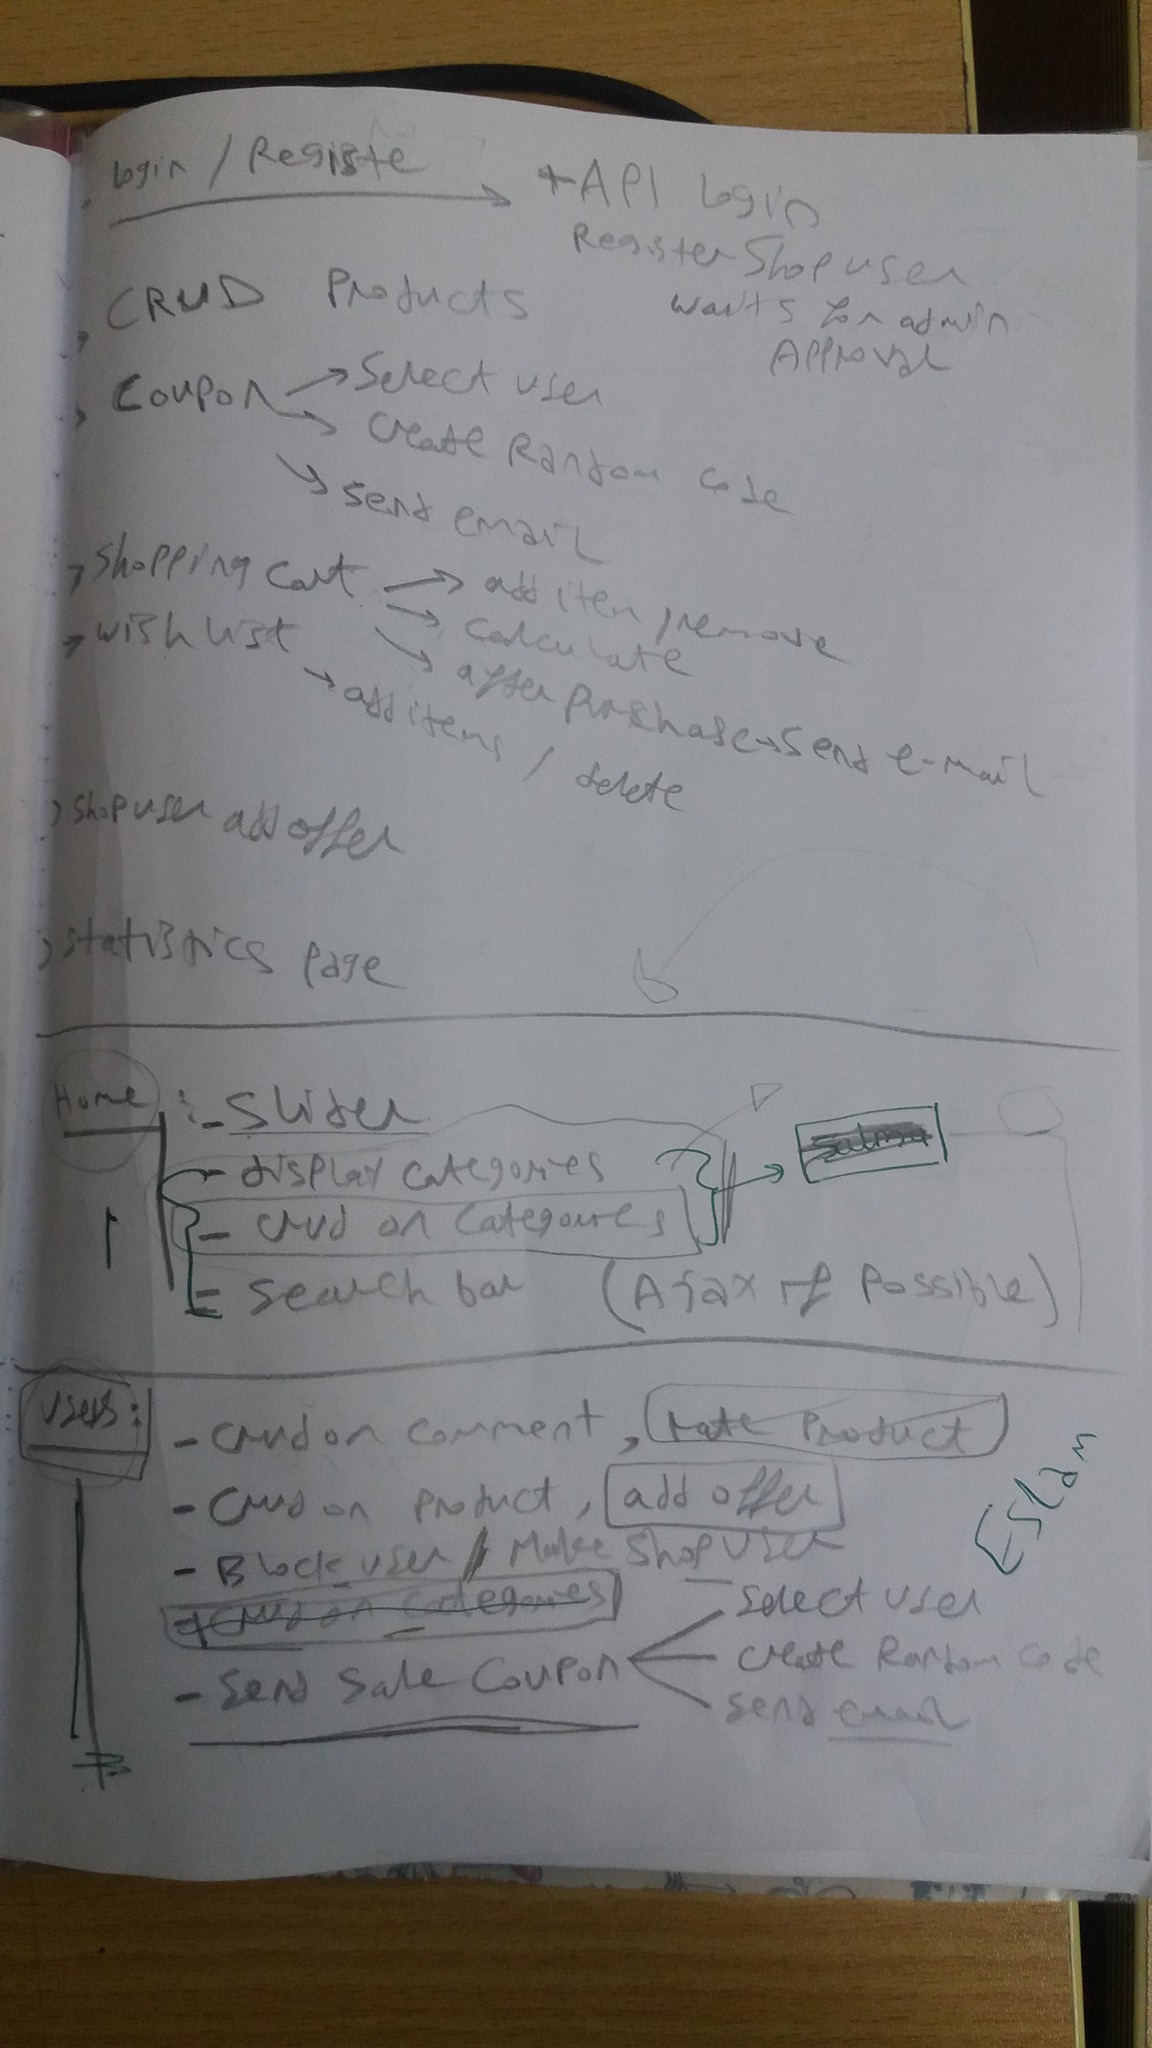 Login / Registe
+API Login
Register Shop user
waits for admin
Approval
CRUD Products
Coupon → Select user
→ Create Random code
→ send email
→ Shopping Cart → add item, remove
→ calculate
→ after Purshase → send e-mail
→ wish list
→ add items / delete
→ shop user add offer
→ statistics page
Home :- Slider
- display categories
- crud on categories
- Search bar (Ajax if possible)
Users:
- crud on comment, rate Product
- crud on Product, add offer
- Block user / Make Shop user
+ crud on categories
- Send Sale Coupon
select user
create Random code
send email
Eslam